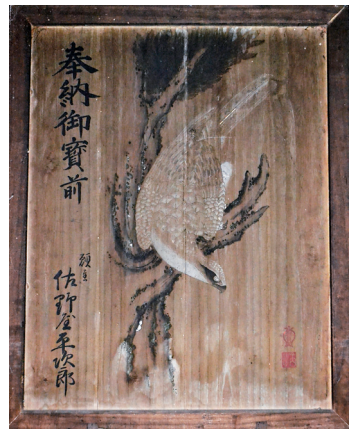 奉納御寳前
願主
佐野屋平次郎